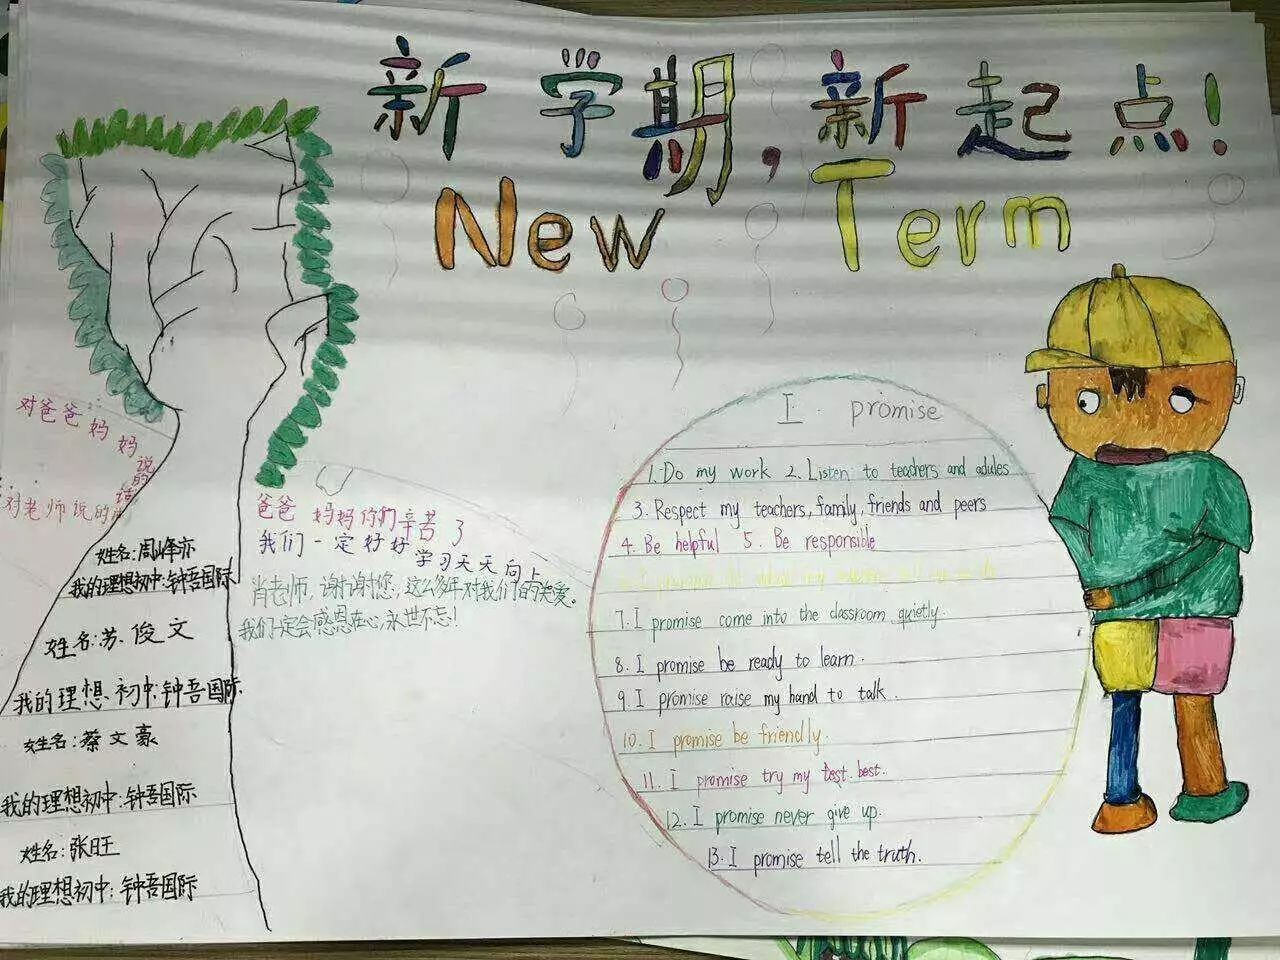 新学期,新起点!
New Term
对爸爸妈妈说的话
对老师说的
姓名:周峰亦
我的理想初中:钟吾国际
姓名:苏俊文
我的理想初中:钟吾国际
姓名:蔡文豪
我的理想初中:钟吾国际
姓名:张旺
我的理想初中:钟吾国际
爸爸妈妈你们辛苦了
我们一定好好学习天天向上
肖老师,谢谢您,这么多年对我们的关爱。
我们一定会感恩在心,永世不忘!
I promise
1.Do my work 2.Listen to teachers and adules
3.Respect my teachers, family, friends and peers
4.Be helpful 5.Be responsible
6.I promise
7.I promise come into the classroom quietly.
8.I promise be ready to learn.
9.I promise raise my hand to talk.
10.I promise be friendly.
11.I promise try my best.
12.I promise never give up.
13.I promise tell the truth.